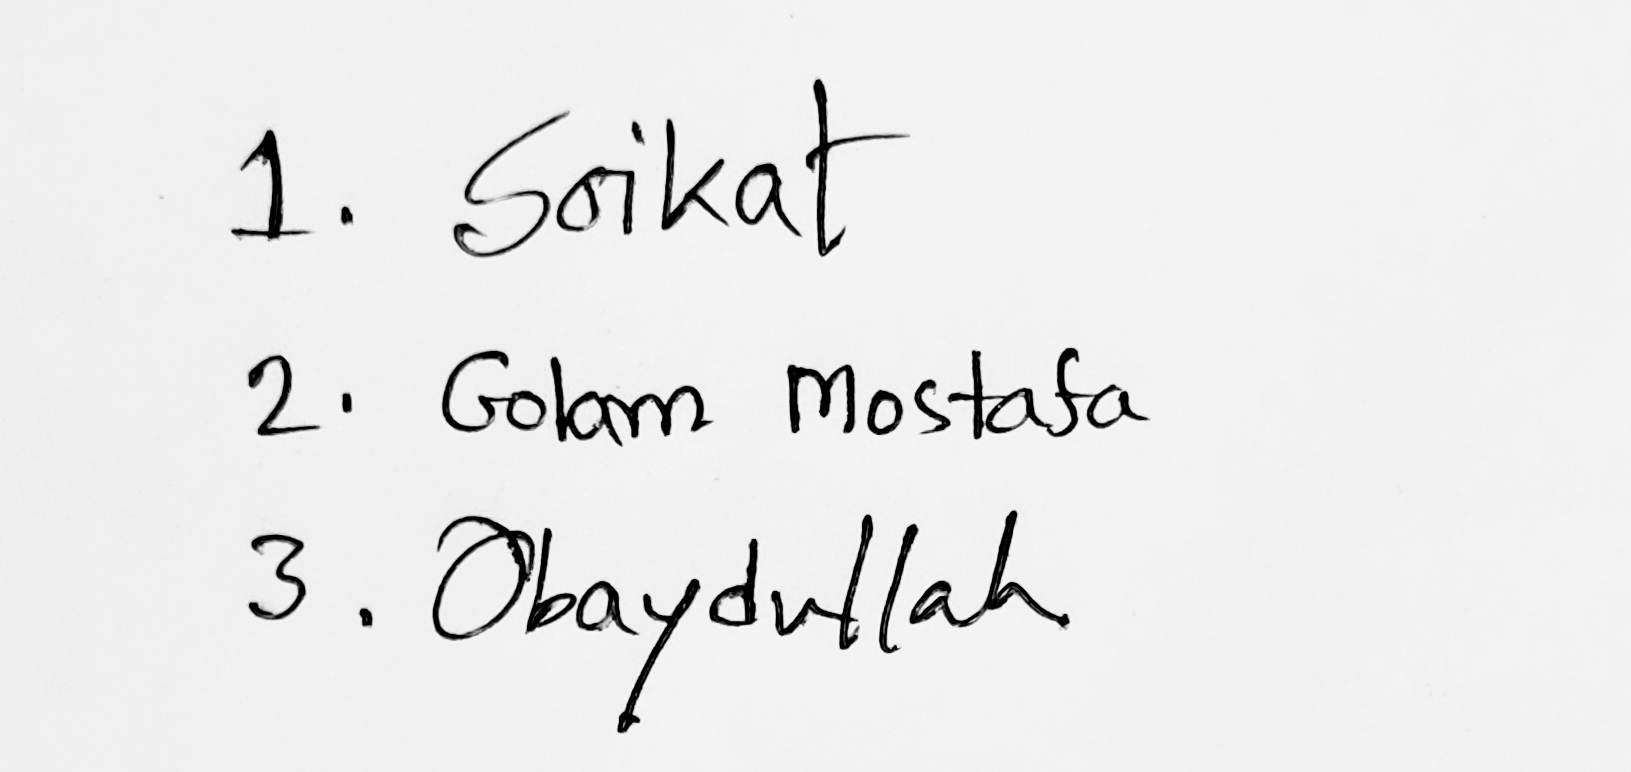 1. Soikat
2. Golam Mostafa
3. Obaydullah